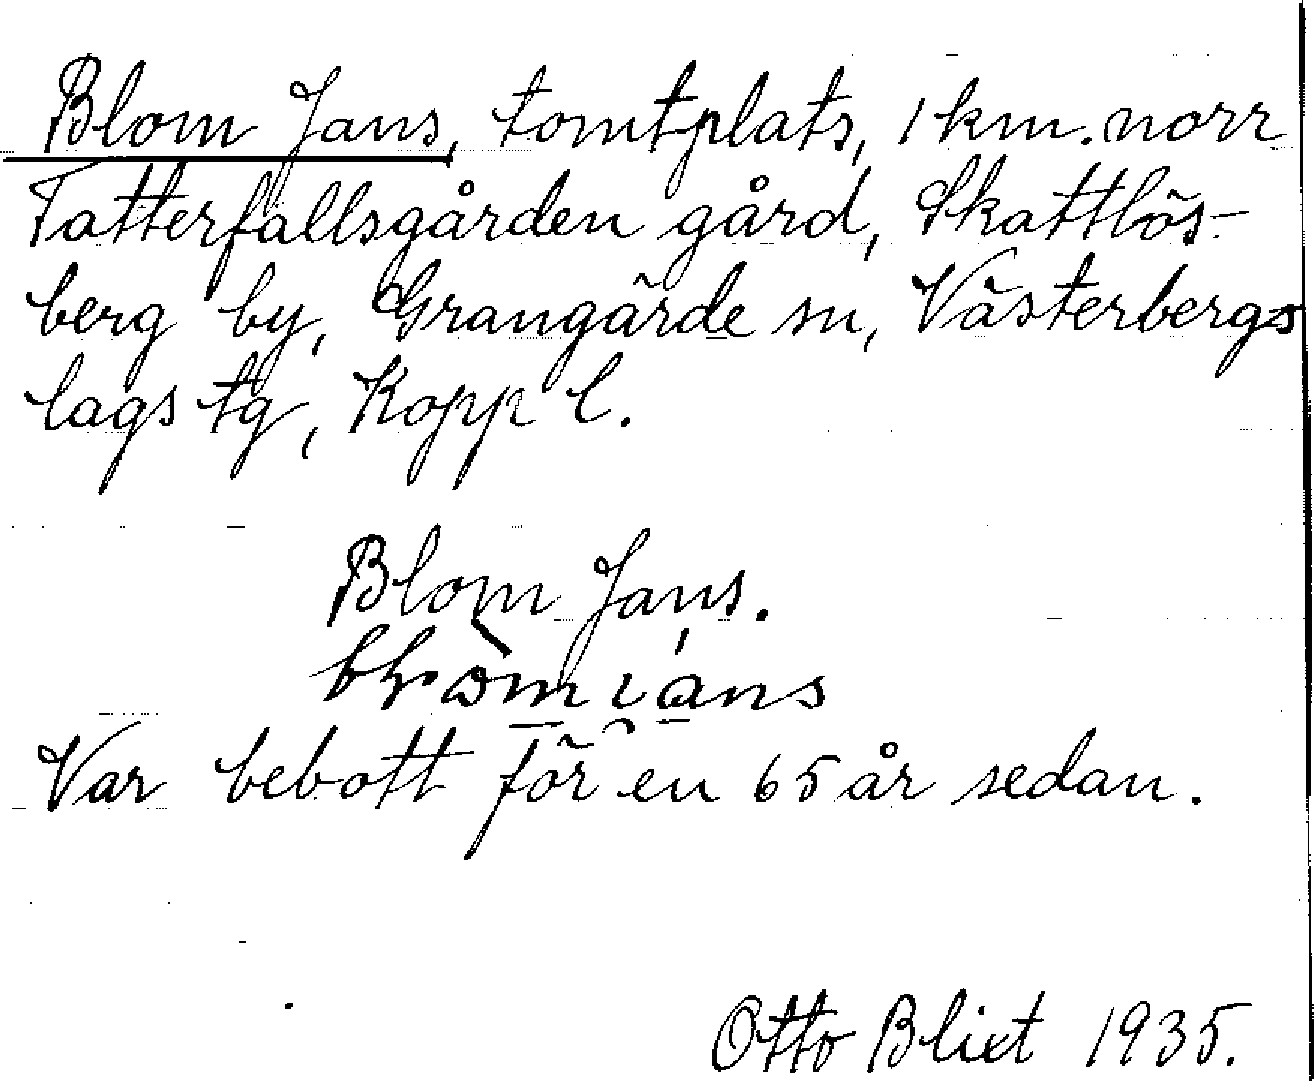 Blom Jans, tomtplats, 1 km. norr
Tatterfallsgården gård, Skattlös-
berg by, Grangärde sn, Västerbergs
lags tg, Kopp l.
Blom Jans.
Var bebott för en 65 år sedan.
Otto Blixt 1935.